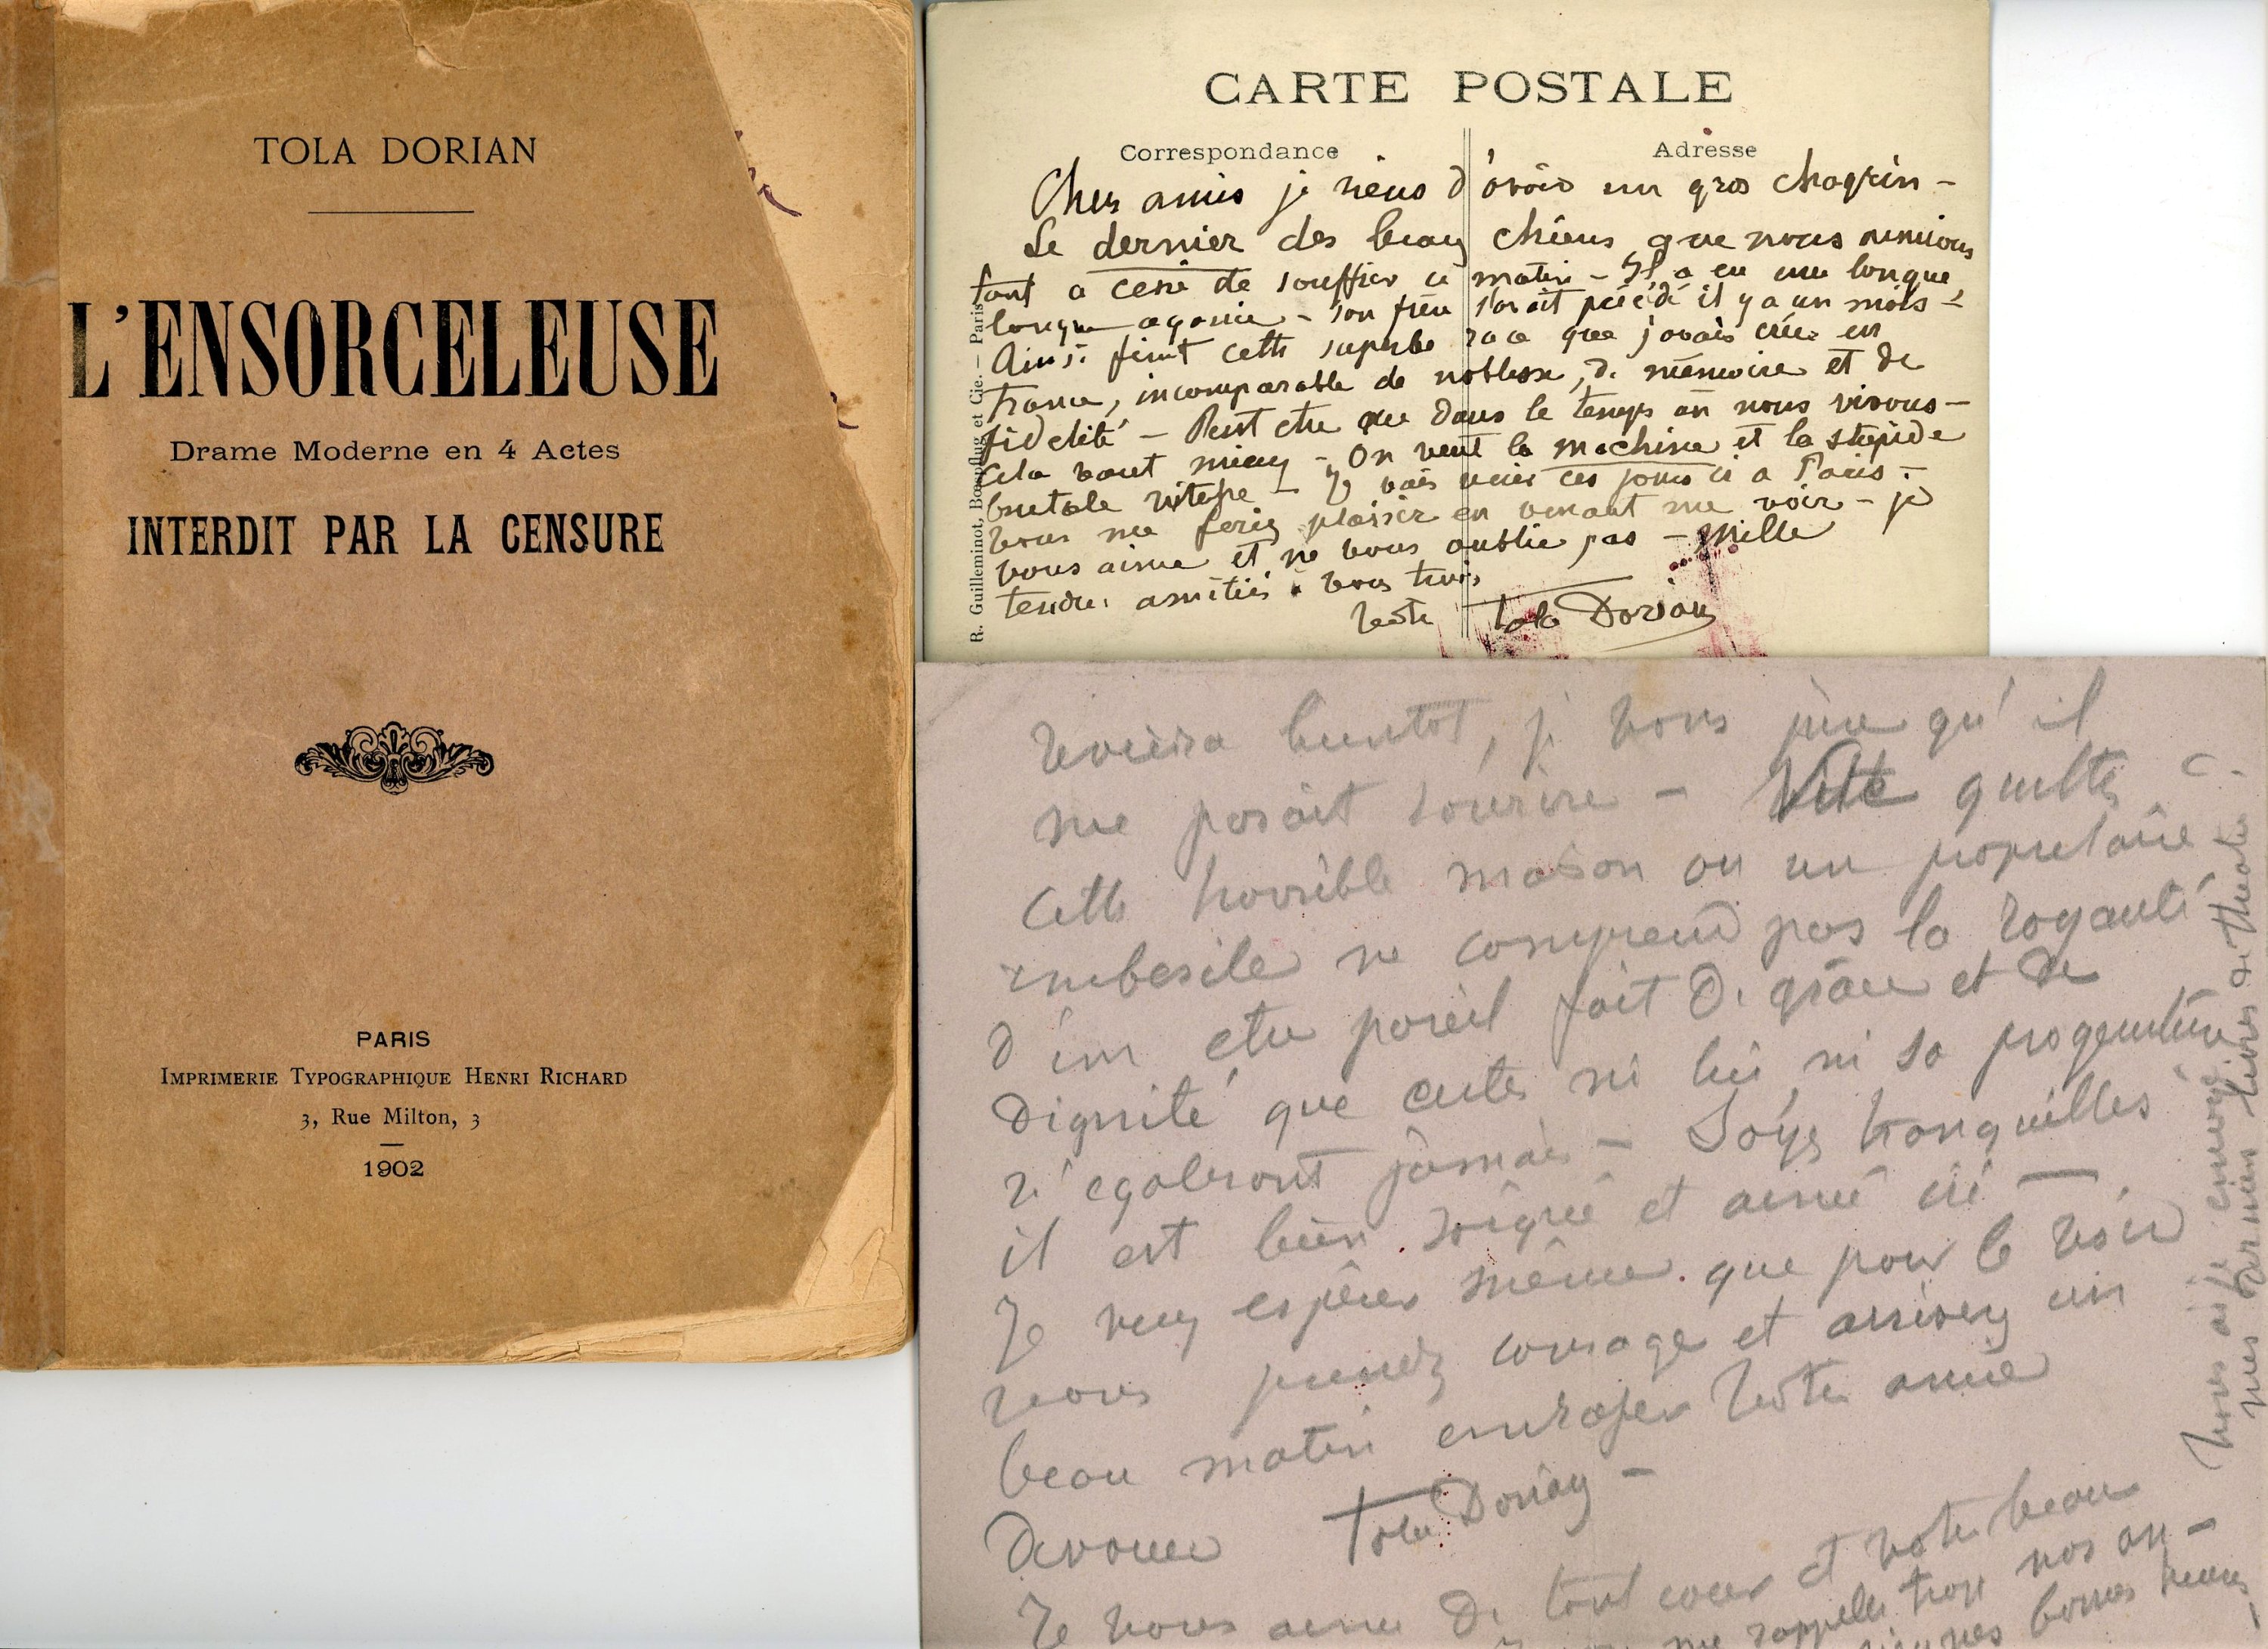 TOLA DORIAN
L'ENSORCELEUSE
Drame Moderne en 4 Actes
INTERDIT PAR LA CENSURE
PARIS
IMPRIMERIE TYPOGRAPHIQUE HENRI RICHARD
3, Rue Milton, 3
1902
CARTE POSTALE
Correspondance
Adresse
R. Guilleminot, Bœspflug et Cie. — Paris
Chers amis je viens d'avoir un gros chagrin -
Le dernier des beaux chiens que nous aimions
tant a cessé de souffrir ce matin - Il a eu une longue,
longue agonie - son frère l'avait précédé il y a un mois -
Ainsi finit cette superbe race que j'avais créée en
France, incomparable de noblesse, de mémoire et de
fidelité - Peut etre que dans le temps où nous vivons -
cela vaut mieux - On veut la machine et la stupide
brutale vitesse - Je vais venir ces jours ci a Paris -
Vous me feriez plaisir en venant me voir - je
vous aime et ne vous oublie pas - Mille
tendres amitiés à vous trois
Votre Tola Dorian
bientot, je vous jure qu'il
me parait sourire - Vite quittez
cette horrible maison ou un propriétaire
imbesile ne comprend pas la royauté
d'un etre pareil fait de grâce et de
dignité que certes ni lui ni sa progeniture
n'egaleront jamais - Soyez tranquilles
il est bien soigné et aimé ici -
Je veux espérer même que pour le voir
vous prenez courage et arrivez un
beau matin embrasser votre amie
devouée Tola Dorian -
Je vous aime de tout coeur et votre beau
me rappelle trop nos an-
bonnes heures
Vous ai je envoyé
mes derniers livres de theatre